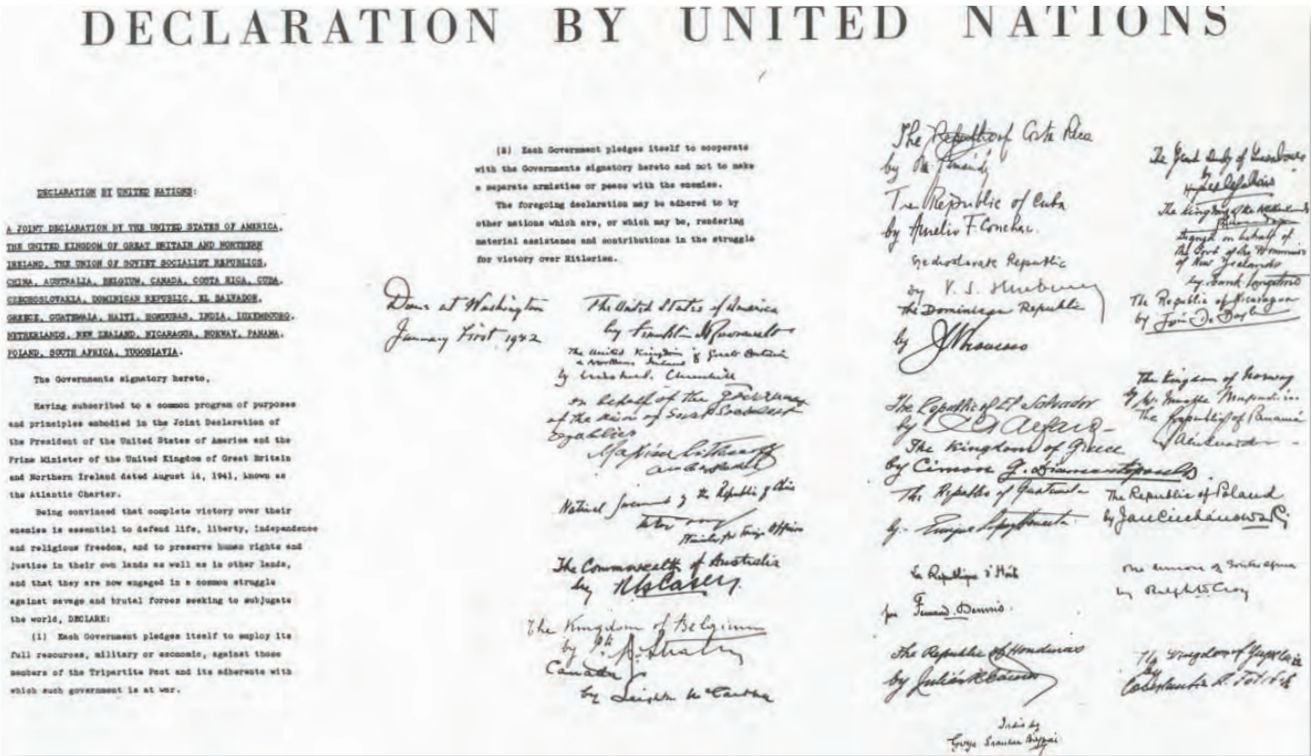 DECLARATION BY UNITED NATIONS
DECLARATION BY UNITED NATIONS:
A JOINT DECLARATION BY THE UNITED STATES OF AMERICA,
THE UNITED KINGDOM OF GREAT BRITAIN AND NORTHERN
IRELAND, THE UNION OF SOVIET SOCIALIST REPUBLICS,
CHINA, AUSTRALIA, BELGIUM, CANADA, COSTA RICA, CUBA,
CZECHOSLOVAKIA, DOMINICAN REPUBLIC, EL SALVADOR,
GREECE, GUATEMALA, HAITI, HONDURAS, INDIA, LUXEMBOURG,
NETHERLANDS, NEW ZEALAND, NICARAGUA, NORWAY, PANAMA,
POLAND, SOUTH AFRICA, YUGOSLAVIA.
The Governments signatory hereto,
Having subscribed to a common program of purposes
and principles embodied in the Joint Declaration of
the President of the United States of America and the
Prime Minister of the United Kingdom of Great Britain
and Northern Ireland dated August 14, 1941, known as
the Atlantic Charter.
Being convinced that complete victory over their
enemies is essential to defend life, liberty, independence
and religious freedom, and to preserve human rights and
justice in their own lands as well as in other lands,
and that they are now engaged in a common struggle
against savage and brutal forces seeking to subjugate
the world, DECLARE:
(1) Each Government pledges itself to employ its
full resources, military or economic, against those
members of the Tripartite Pact and its adherents with
which such government is at war.
(2) Each Government pledges itself to cooperate
with the Governments signatory hereto and not to make
a separate armistice or peace with the enemies.
The foregoing declaration may be adhered to by
other nations which are, or which may be, rendering
material assistance and contributions in the struggle
for victory over Hitlerism.
Done at Washington
January First, 1942
The United States of America
by Franklin D Roosevelt
The United Kingdom of Great Britain
& Northern Ireland
by Winston Churchill
on behalf of the Government
of the Union of Soviet Socialist
Republics
Maxim Litvinoff
Ambassador
National Government of the Republic of China
The Commonwealth of Australia
by R G Casey
The Kingdom of Belgium
by
Canada
by Leighton McCarthy
The Republic of Costa Rica
by
The Republic of Cuba
by Aurelio F. Concheso
Republic
by V. S. Hurban
The Dominican Republic
by
The Republic of El Salvador
by C A Alfaro
The Kingdom of Greece
by Cimon G. Diamantopoulos
The Republic of Guatemala
by
La Republique d'Haiti
par Fernand Dennis
The Republic of Honduras
by Julián R Cáceres
India by
Girja Shankar Bajpai
The Grand Duchy of Luxembourg
by
The Kingdom of the Netherlands
Signed on behalf of
the Govt of the Dominion
of New Zealand
by Frank Langstone
The Republic of Nicaragua
by
The Kingdom of Norway
by
The Republic of Panamá
by
The Republic of Poland
by Jan Ciechanowski
The Union of South Africa
by Ralph W Close
The Kingdom of Yugoslavia
by
Constantin A. Fotitch